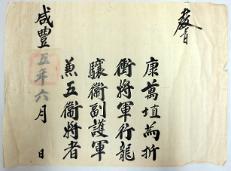 教旨
康萬埴為折
衝將軍行龍
驤衛副護軍
兼五衛將者
咸豐五年六月 日